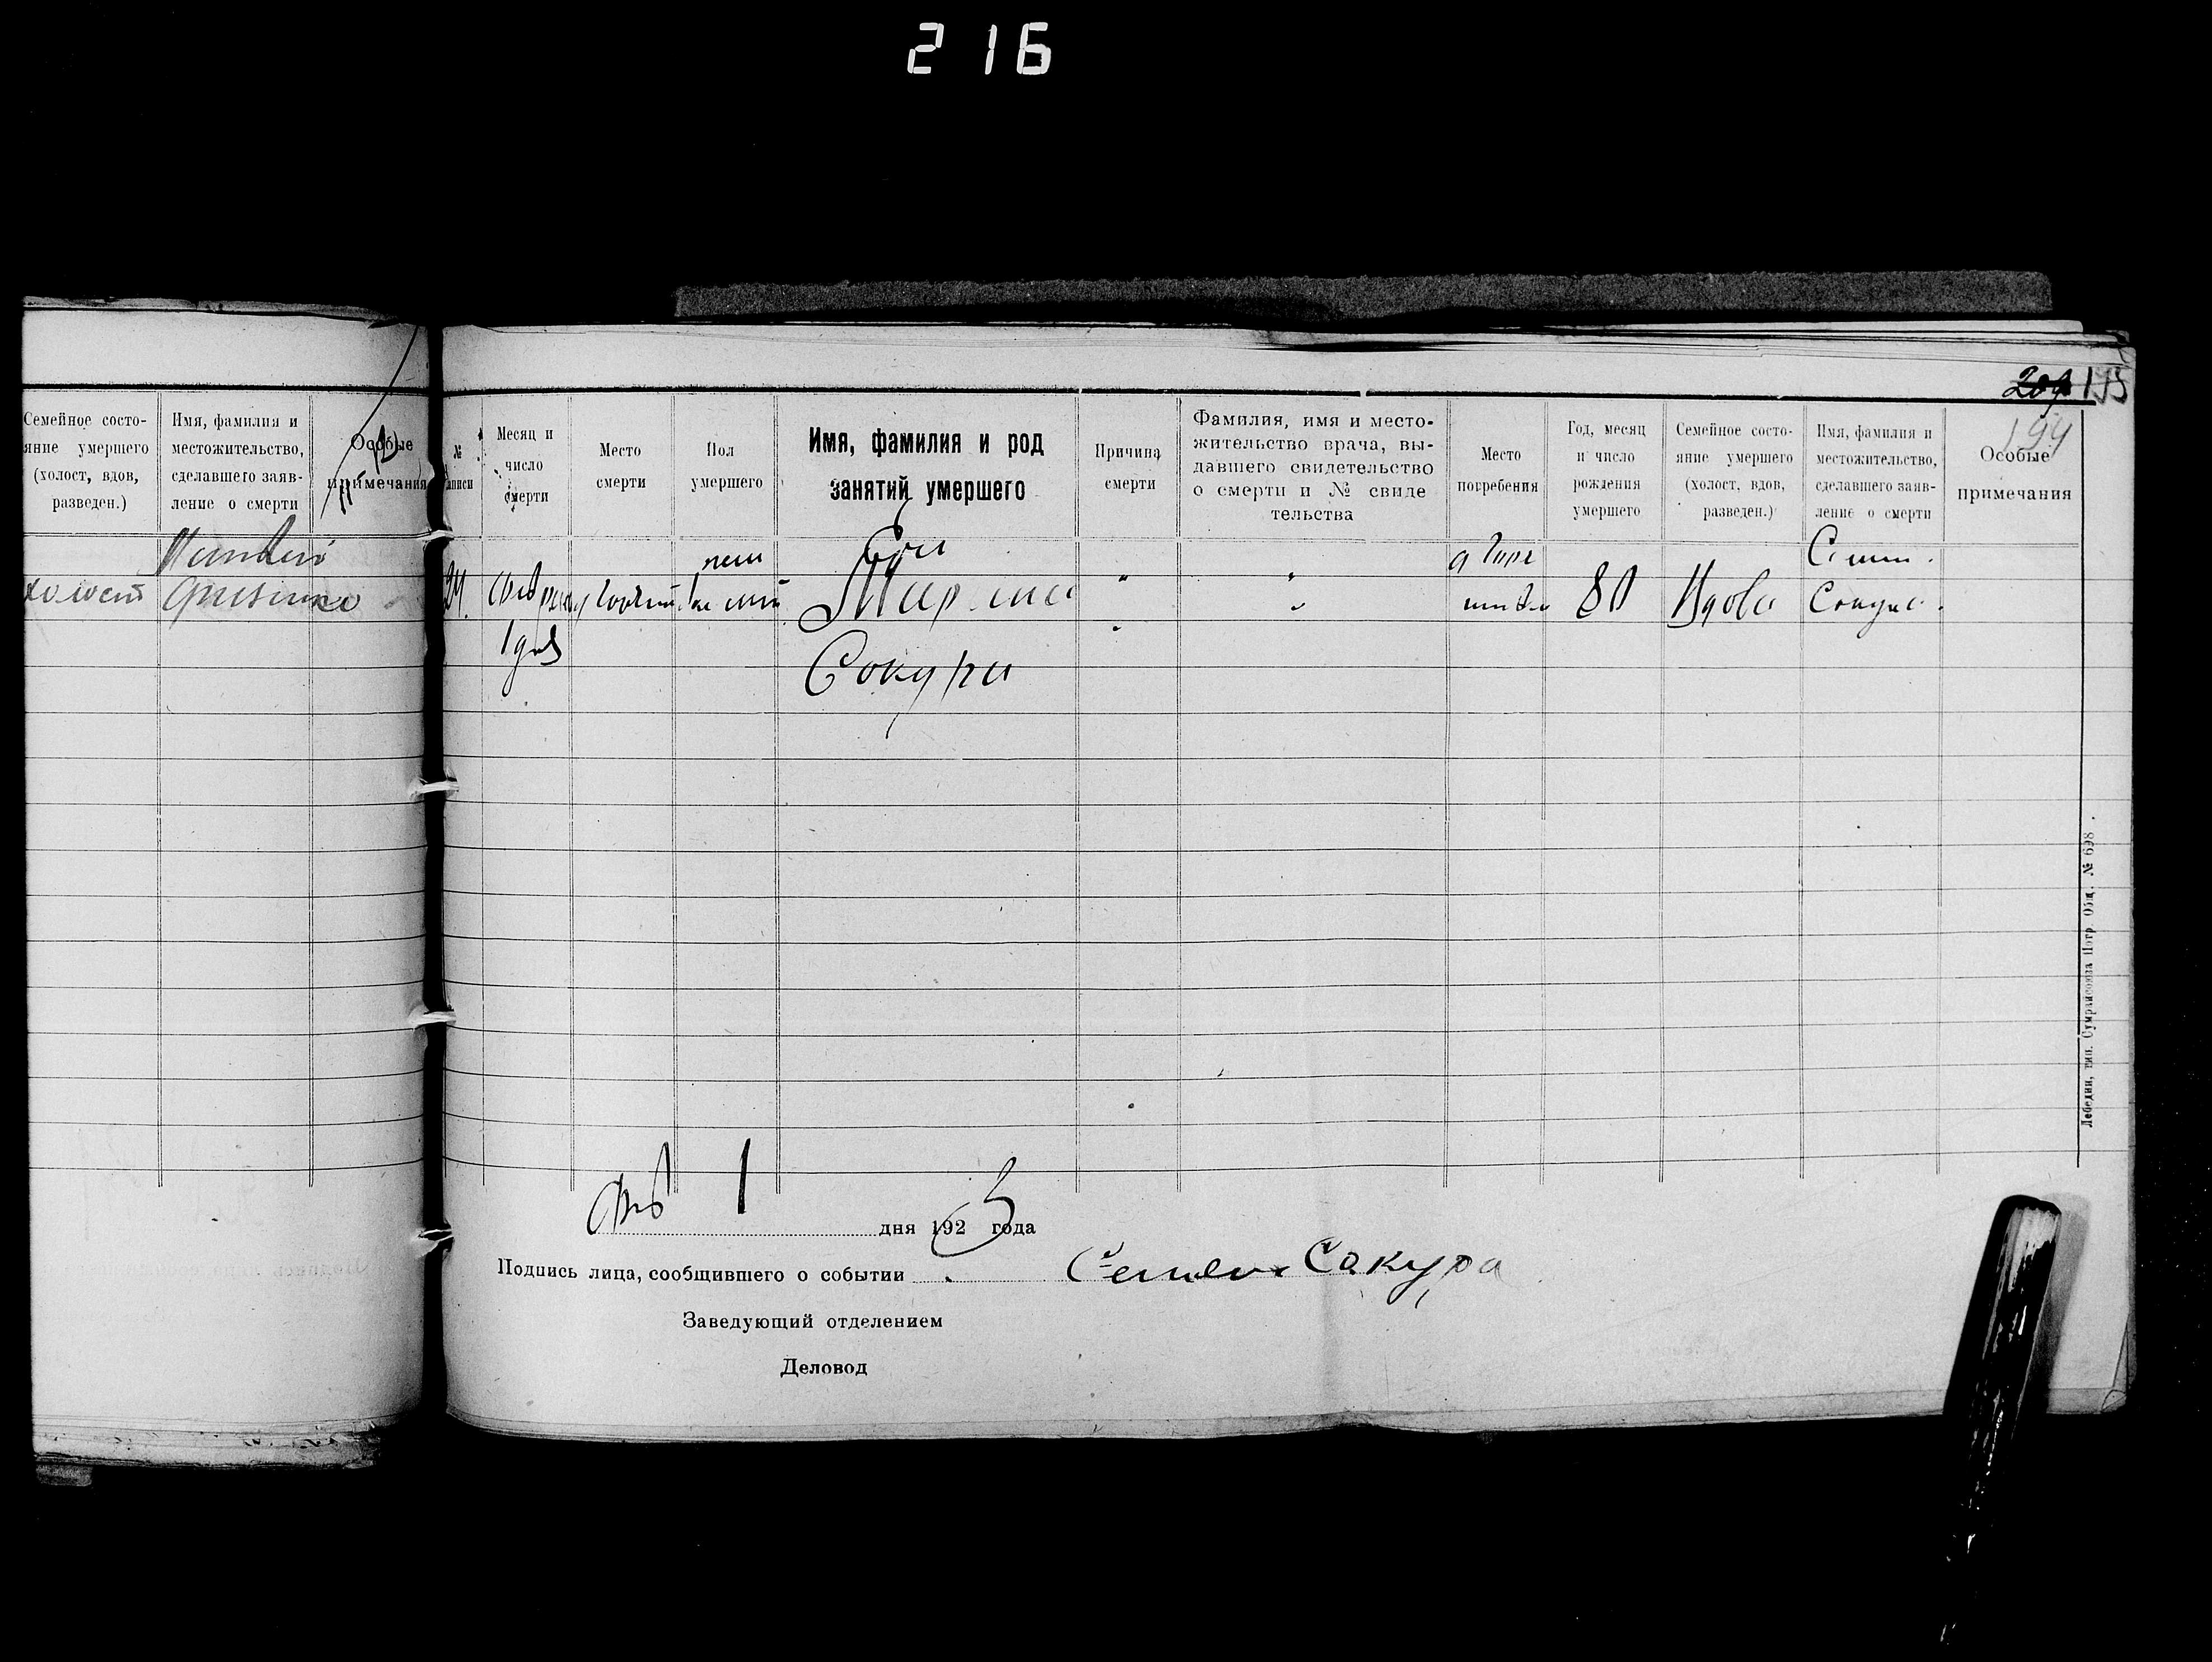 216
209 195
194
Семейное состо-
яние умершего
(холост, вдов,
разведен.)
Имя, фамилия и
местожительство,
сделавшего заяв-
ление о смерти
Особые
примечания
холост
№
записи
Месяц и
число
смерти
Место
смерти
Пол
умершего
Имя, фамилия и род
занятий умершего
Причина
смерти
Фамилия, имя и место-
жительство врача, вы-
давшего свидетельство
о смерти и № свиде
тельства
Место
погребения
Год, месяц
и число
рождения
умершего
Семейное состо-
яние умершего
(холост, вдов,
разведен.)
Имя, фамилия и
местожительство,
сделавшего заяв-
ление о смерти
Особые
примечания
24.
1
Сокури
80
Вдова
Сокура
1
дня 1925 года
Подпись лица, сообщившего о событии Семен Сакура
Заведующий отделением
Деловод
Лебедин, тип. Сумрайсоюза Потр. Общ. № 698.